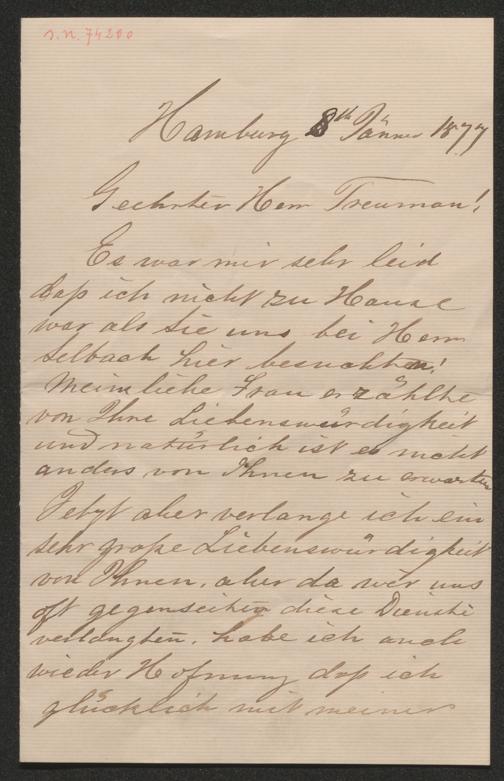 J.N. 74200
Hamburg 8th Jänner 1877
Geehrter Herr Treuman!
Es war mir sehr leid
daß ich nicht zu Hause
war als Sie uns bei Herrn
Selbach hier besuchten!
Meine liebe Frau erzählte
von Ihre Liebenswürdigkeit
und natürlich ist es nicht
anders von Ihnen zu erwarten
Jetzt aber verlange ich ein
sehr große Liebenswürdigkeit
von Ihnen, aber da wir uns
oft gegenseiten diese Dienste
verlangten, habe ich auch
wieder Hofnung daß ich
glücklich mit meiner